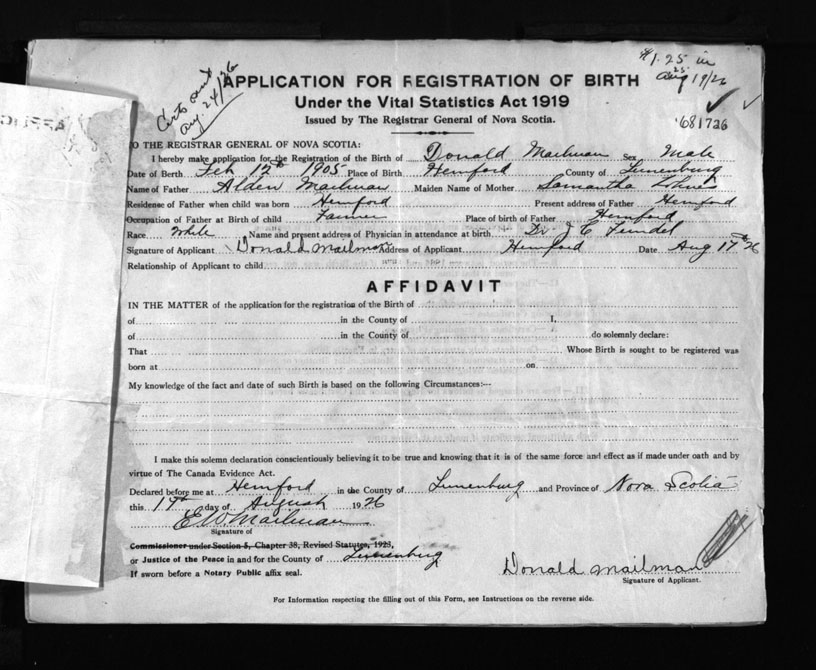 $1.25 in
25
Aug 19/26
Certs sent
Aug. 24/26
APPLICATION FOR REGISTRATION OF BIRTH
Under the Vital Statistics Act 1919
Issued by The Registrar General of Nova Scotia.
681726
TO THE REGISTRAR GENERAL OF NOVA SCOTIA:
I hereby make application for the Registration of the Birth of Donald Mailman Sex Male
Date of Birth Feb 12th 1905 Place of Birth Hemford County of Lunenburg
Name of Father Alden Mailman Maiden Name of Mother Samantha
Residense of Father when child was born Hemford Present address of Father Hemford
Occupation of Father at Birth of child Farmer Place of birth of Father Hemford
Race White Name and present address of Physician in attendance at birth Dr J C
Signature of Applicant Donald Mailman Address of Applicant Hemford Date Aug 17th 26
Relationship of Applicant to child
AFFIDAVIT
IN THE MATTER of the application for the registration of the Birth of
of in the County of I,
of in the County of do solemnly declare:
That Whose Birth is sought to be registered was
born at on
My knowledge of the fact and date of such Birth is based on the following Circumstances:—
I make this solemn declaration conscientiously believing it to be true and knowing that it is of the same force and effect as if made under oath and by
virtue of The Canada Evidence Act.
Declared before me at Hemford in the County of Lunenburg and Province of Nova Scotia
this 17th day of August 1926
E W Mailman
Signature of
Commissioner under Section 5, Chapter 38, Revised Statutes, 1923,
or Justice of the Peace in and for the County of Lunenburg
If sworn before a Notary Public affix seal.
Donald Mailman
Signature of Applicant.
For Information respecting the filling out of this Form, see Instructions on the reverse side.